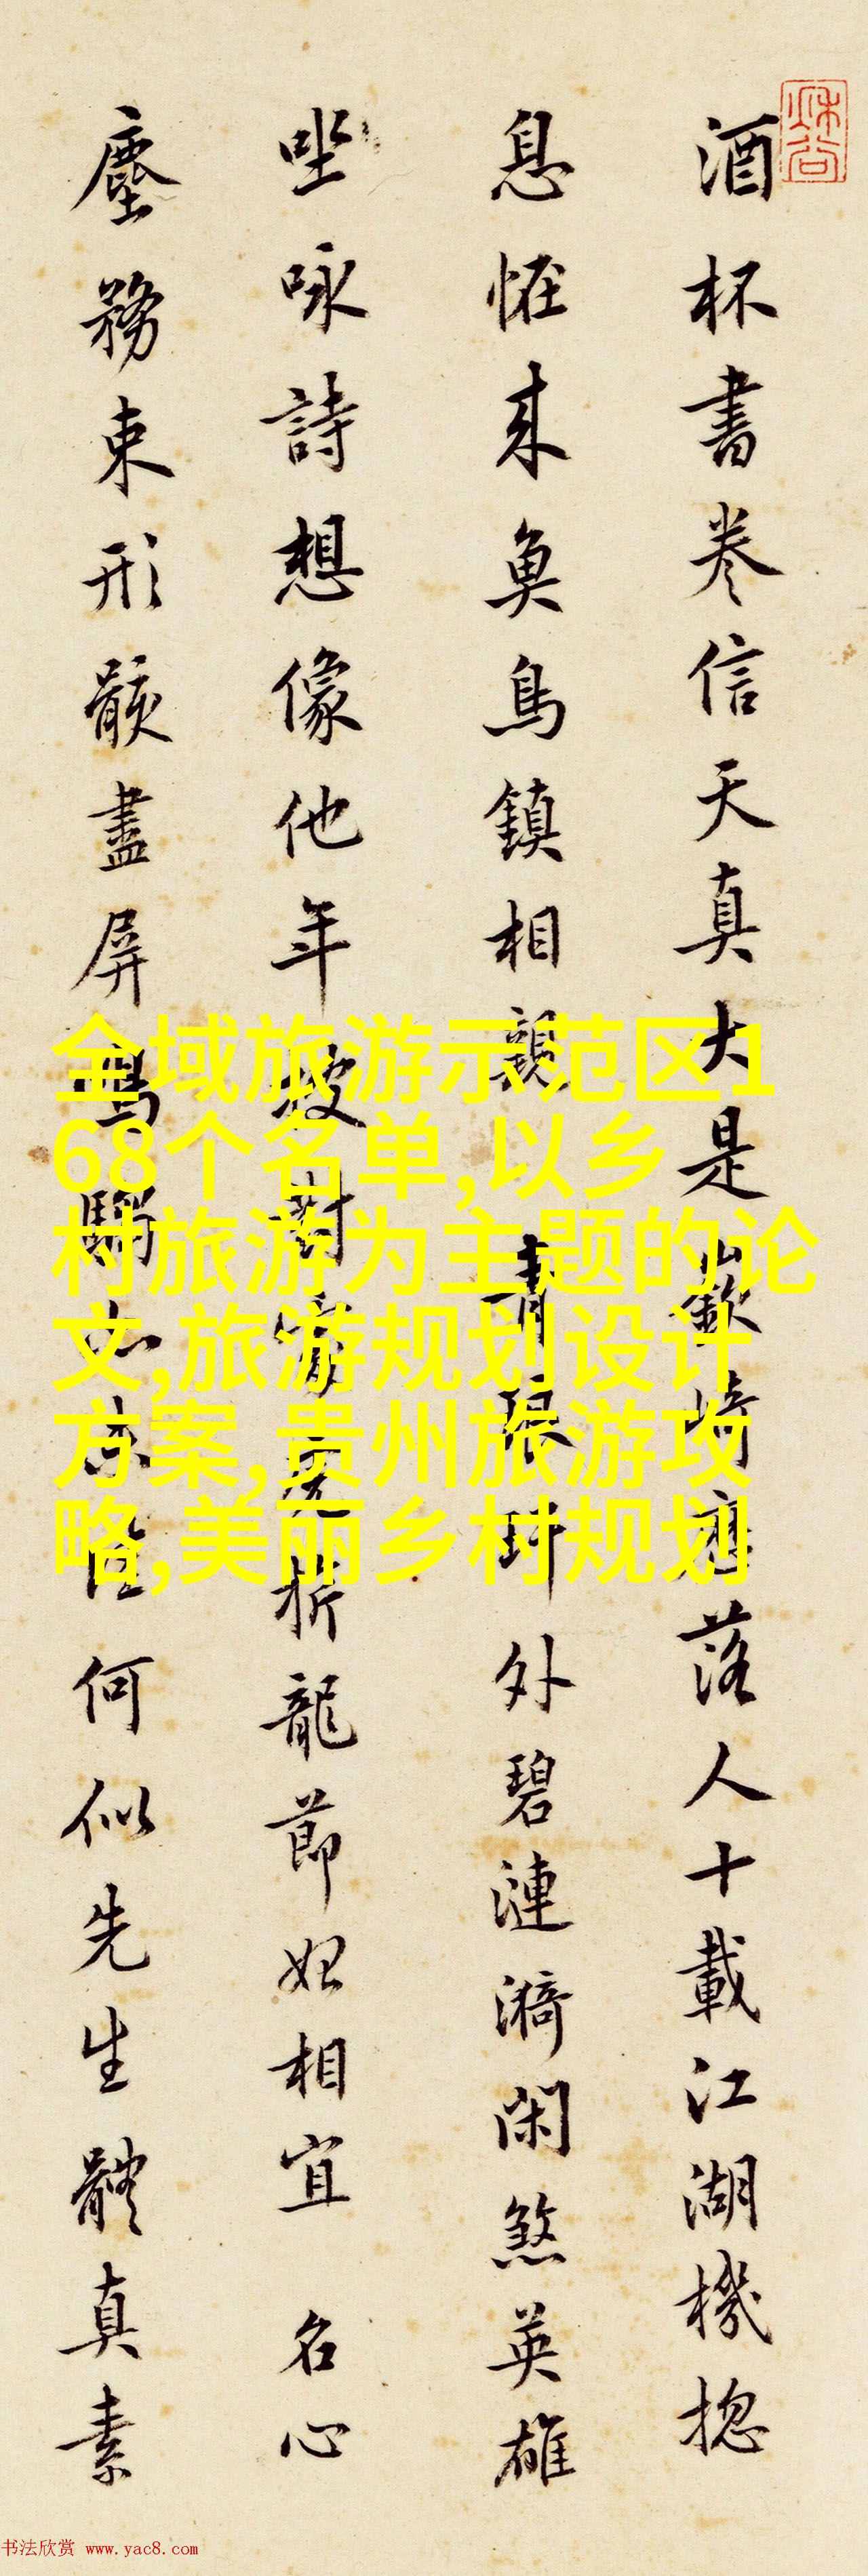 酒杯書卷信天真大是嶔崎磊落人十載江湖機揔
息恠來魚鳥鎮相親 青眼外碧漣漪閑煞英雄
坐詠詩想像他年披對家折龍節始相宜 名心
塵務束形骸盡屏何似先生體真素
全域旅游示范区1
68个名单,以乡
村旅游为主题的论
文,旅游规划设计
方案,贵州旅游攻
略,美丽乡村规划
书法欣赏 www.yac8.com